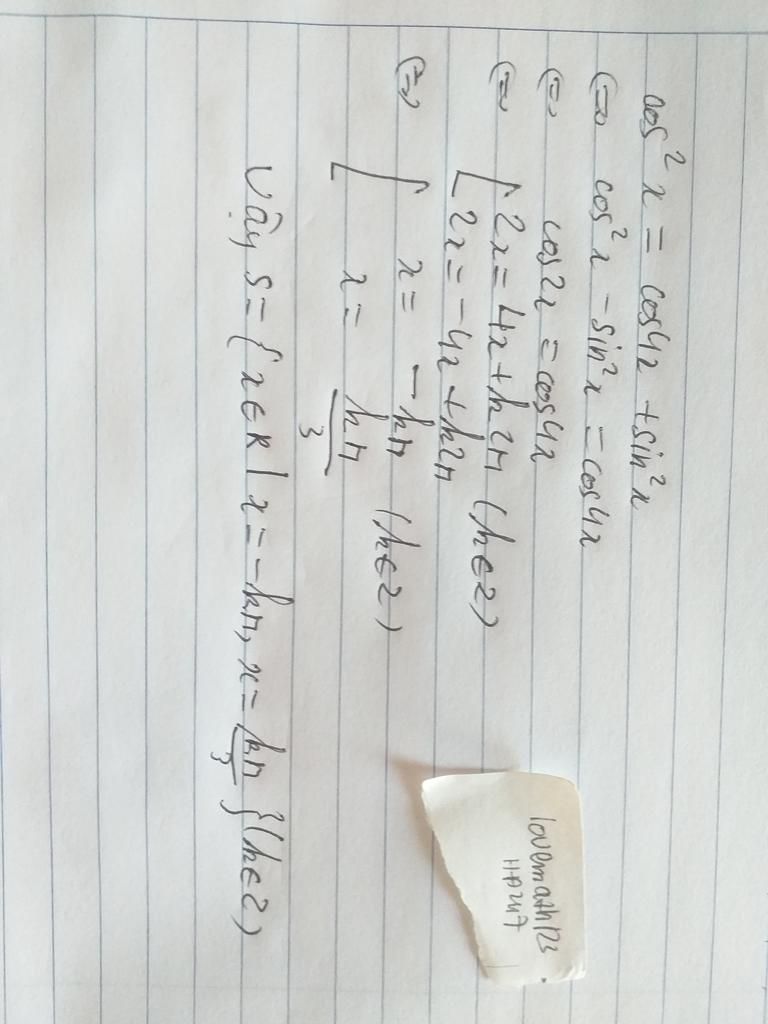 cos²x = cos4x + sin²x
(=) cos²x - sin²x = cos4x
(=) cos2x = cos4x
(=) [ 2x = 4x + k2π (k∈Z)
2x = -4x + k2π
(=) [ x = -kπ (k∈Z)
x = kπ/3
Vậy S = { x∈R | x = -kπ, x = kπ/3 } (k∈Z)
lovemath123